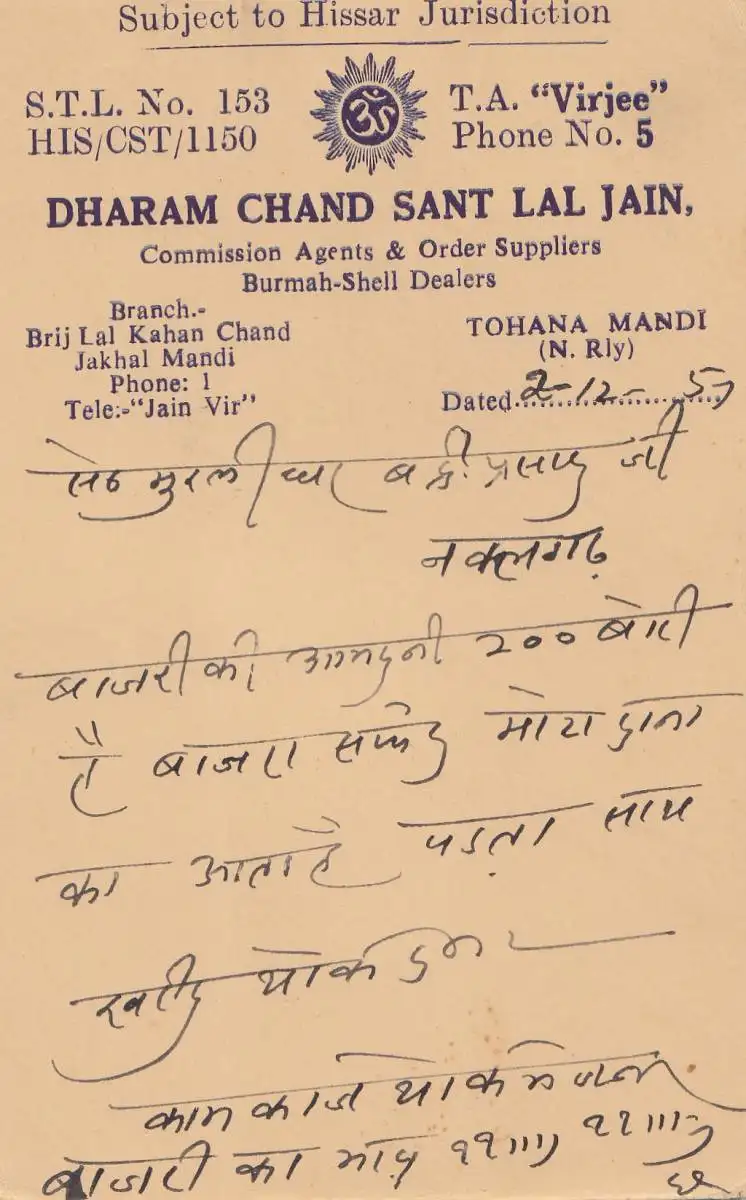 Subject to Hissar Jurisdiction
S.T.L. No. 153
HIS/CST/1150
ॐ
T.A. "Virjee"
Phone No. 5
DHARAM CHAND SANT LAL JAIN,
Commission Agents & Order Suppliers
Burmah-Shell Dealers
Branch.-
Brij Lal Kahan Chand
Jakhal Mandi
Phone: 1
Tele:-"Jain Vir"
TOHANA MANDI
(N. Rly)
Dated 2-12-57
सेठ मुरलीधर बद्री प्रसाद जी
नवलगढ़
बाजरी की आमदनी 200 बोरी
है बाजरा सफेद मोटा दाना
का आता है पड़ता साथ
खरीद थोक
काम काज थोक
बाजरी का भाव ११॥।) ११॥।)